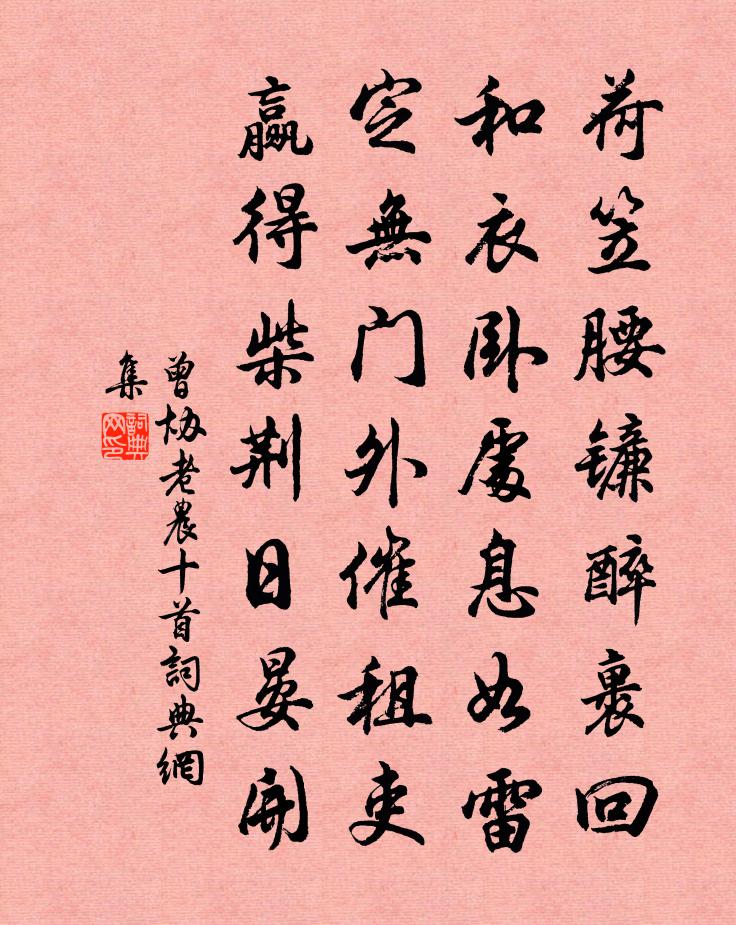 荷笠腰镰醉裹回
和衣卧處息如雷
定無门外催租吏
赢得柴荆日晏開
曾协老農十首詞典網
集
詞典
网印